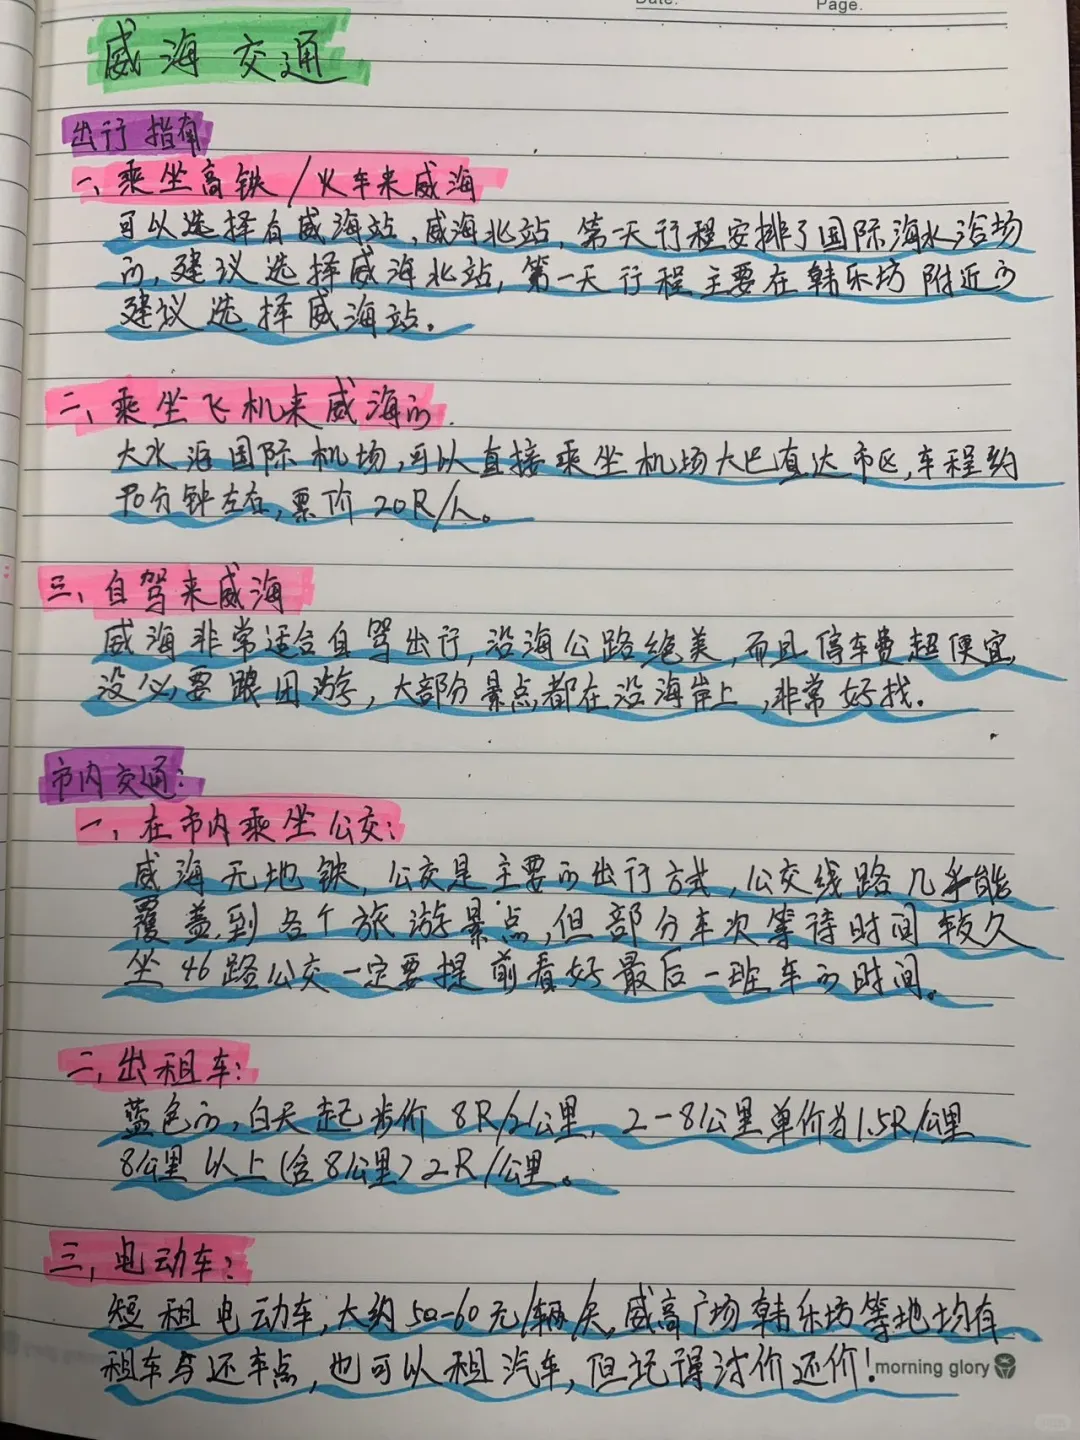 Date.
Page.
威海交通
出行指南
一、乘坐高铁/火车来威海
可以选择有威海站,威海北站,第一天行程安排了国际海水浴场
的,建议选择威海北站,第一天行程主要在韩乐坊附近的
建议选择威海站。
二、乘坐飞机来威海的.
大水泊国际机场,可以直接乘坐机场大巴直达市区,车程约
分钟左右,票价20R/人。
三、自驾来威海
威海非常适合自驾出行,沿海公路绝美,而且停车费超便宜,
没必要跟团游,大部分景点都在沿海岸上,非常好找.
市内交通:
一、在市内乘坐公交:
威海无地铁,公交是主要的出行方式,公交线路几乎能
覆盖到各个旅游景点,但部分车次等待时间较久
坐46路公交一定要提前看好最后一班车的时间。
二、出租车:
蓝色的,白天起步价8R/2公里,2-8公里单价为1.5R/公里
8公里以上(含8公里)2R/公里。
三,电动车:
短租电动车,大约50-60元/辆/天,威高广场韩乐坊等地均有
租车与还车点,也可以租汽车,但记得讨价还价!
morning glory